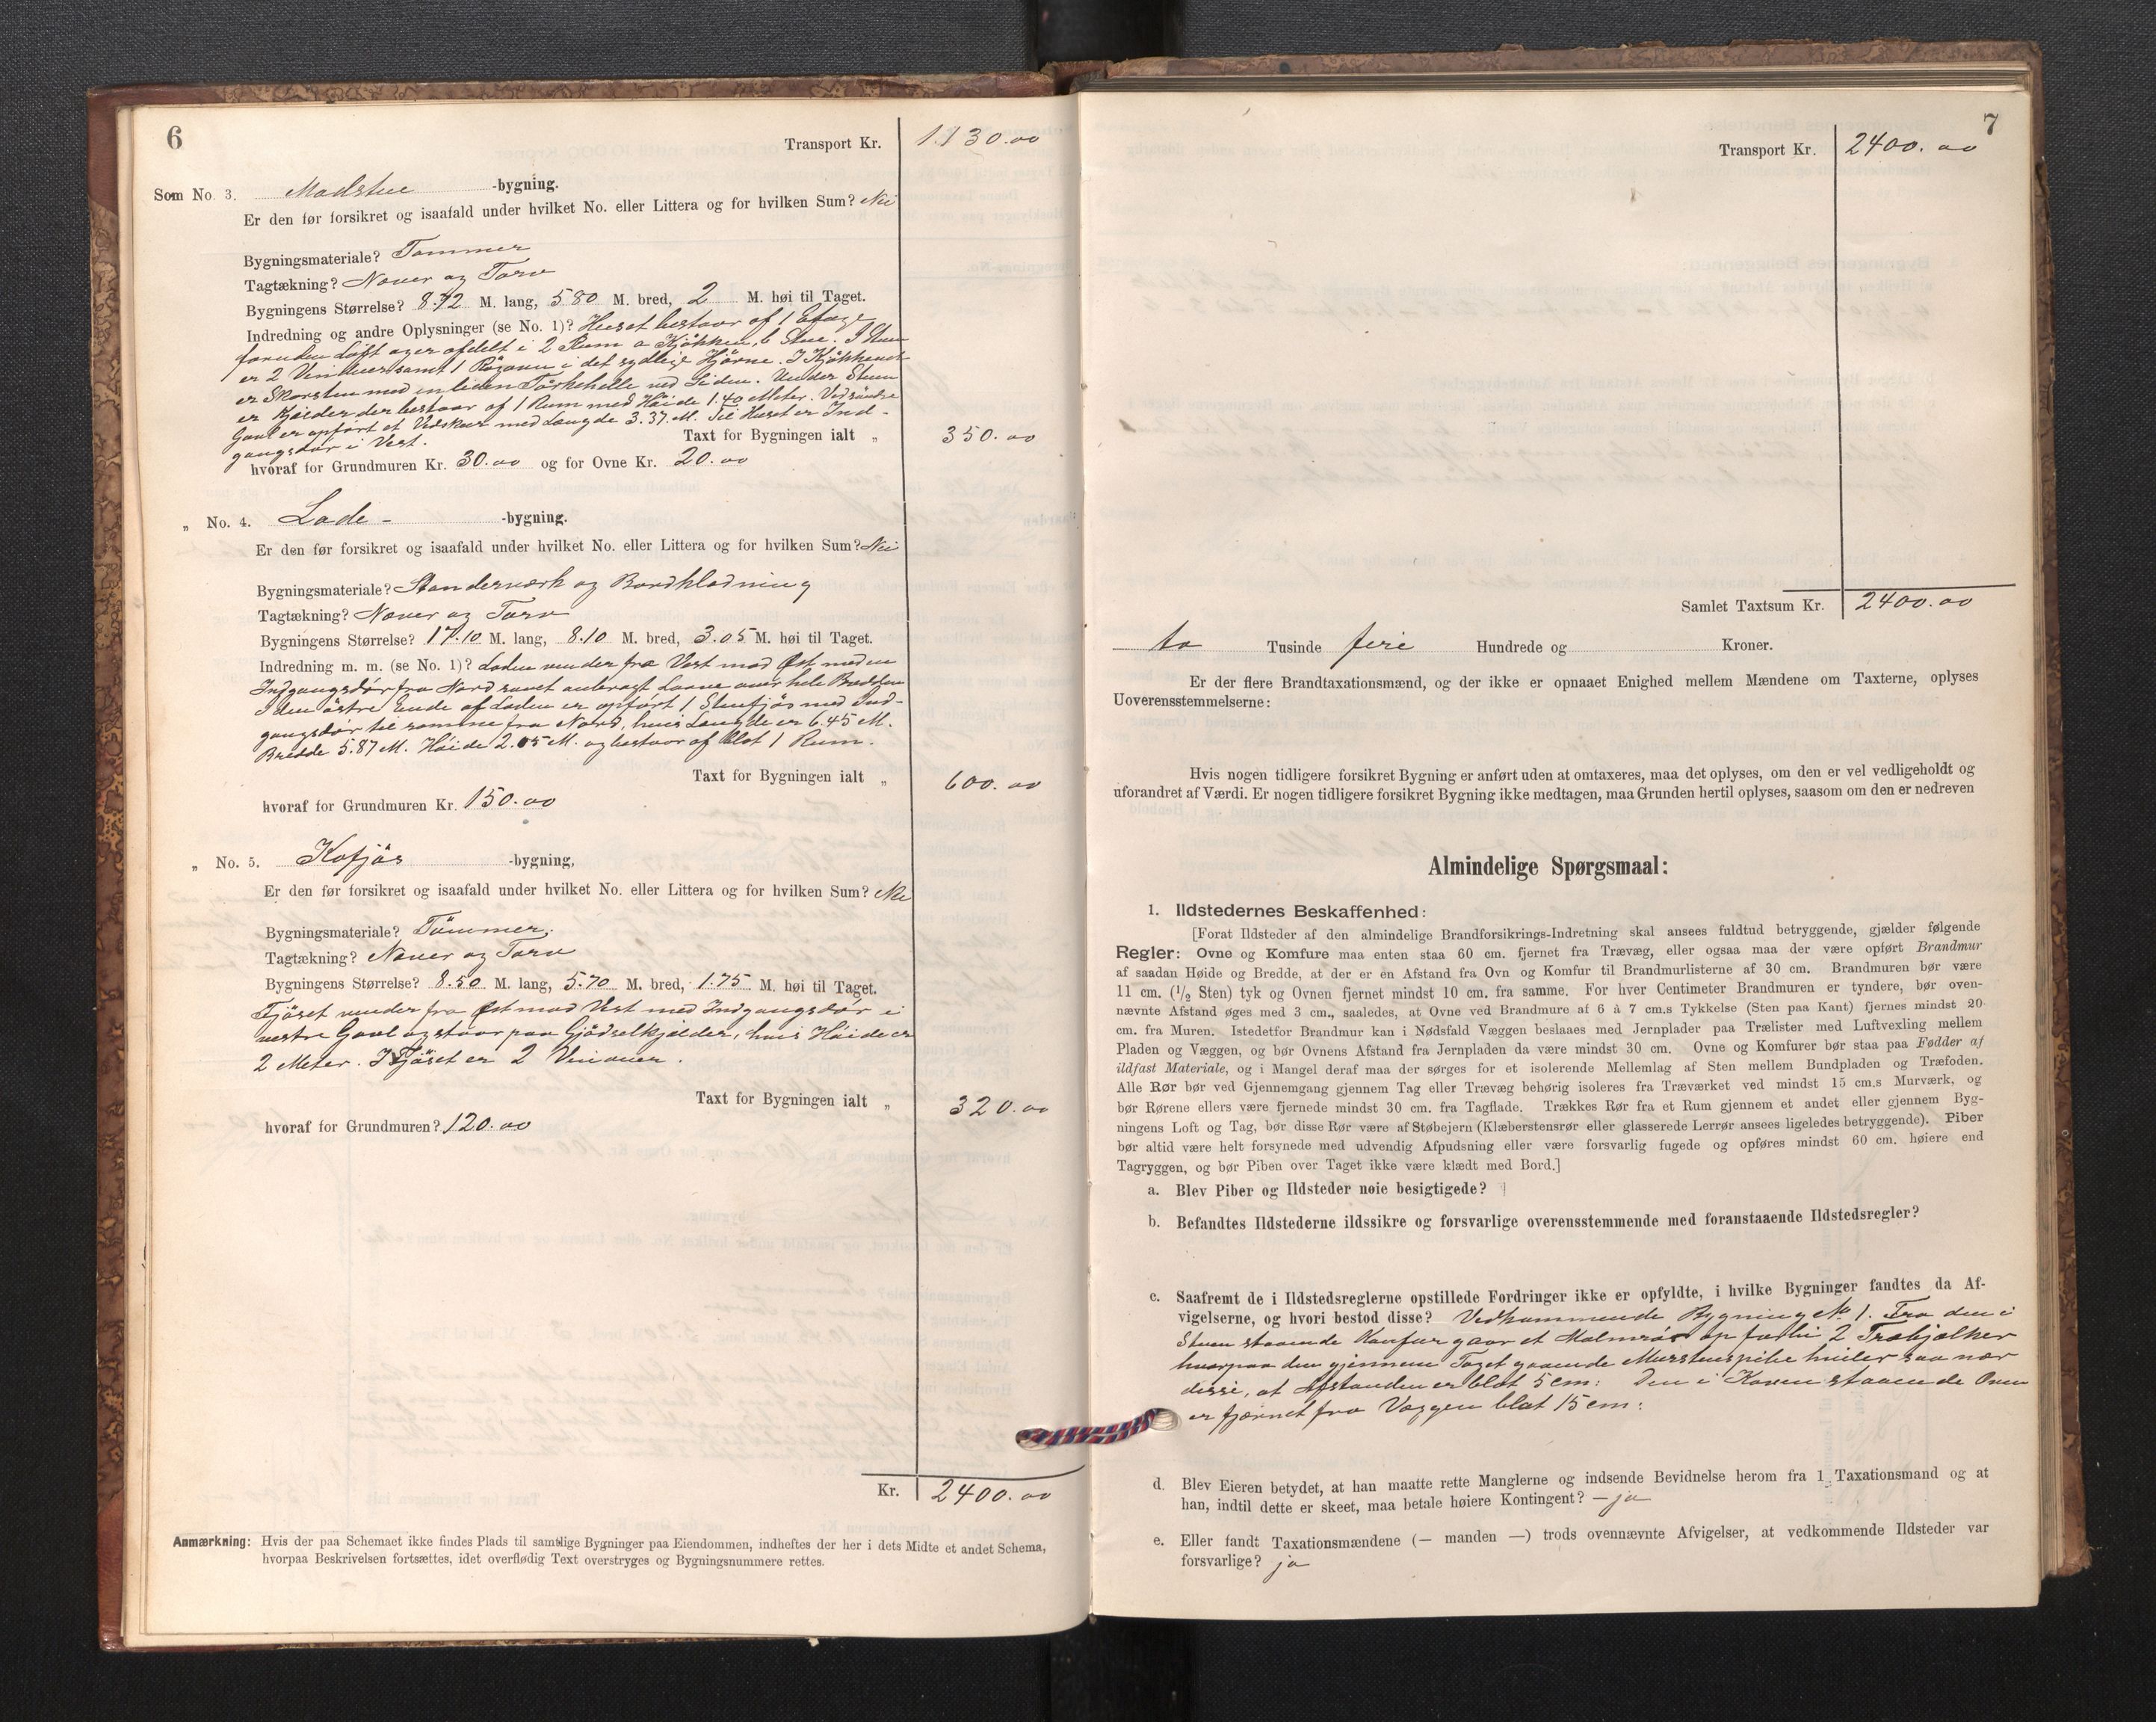 6
Transport Kr. 1130.00
Som No. 3. Madstue -bygning.
Er den før forsikret og isaafald under hvilket No. eller Littera og for hvilken Sum? Nei
Bygningsmateriale? Tømmer
Tagtækning? Næver og Torv
Bygningens Størrelse? 8.72 M. lang, 5.80 M. bred, 2 M. høi til Taget.
Indredning og andre Oplysninger (se No. 1)? Huset bestaar af 1 Etage
foruden Loft og er afdelt i 2 Rum a Kjøkken, b Stue. I Stuen
er 2 Vinduer samt 1 Røgovn i det sydlige Hjørne. I Kjøkkenet
er Skorsten med en liden Tørkehelle ved Siden. Under Stuen
er Kjelder der bestaar af 1 Rum med Høide 1.40 Meter. Ved søndre
Gavl er opført et Vedskur med Længde 3.37 M. Til Huset er Ind-
gangsdør i Vest.
Taxt for Bygningen ialt „ 350.00
hvoraf for Grundmuren Kr. 30.00 og for Ovne Kr. 20.00
„ No. 4. Lade- -bygning.
Er den før forsikret og isaafald under hvilket No. eller Littera og for hvilken Sum? Nei
Bygningsmateriale? Standerværk og Bordklædning
Tagtækning? Næver og Torv
Bygningens Størrelse? 17.10 M. lang, 8.10 M. bred, 3.05 M. høi til Taget.
Indredning m. m. (se No. 1)? Laden vender fra Vest mod Øst med en
Indgangsdør fra Nord samt anbragt Laave over hele Bredden
I den østre Ende af Laden er opført 1 Stenfjøs med Ind-
gangsdør til samme fra Nord, hvis Længde er 6.45 M.
Bredde 5.87 M. Høide 2.05 M. og bestaar af blot 1 Rum.
Taxt for Bygningen ialt „ 600.00
hvoraf for Grundmuren Kr. 150.00
„ No. 5. Kofjøs -bygning,
Er den før forsikret og isaafald under hvilket No. eller Littera og for hvilken Sum? Nei
Bygningsmateriale? Tømmer.
Tagtækning? Næver og Torv
Bygningens Størrelse? 8.50 M. lang, 5.70 M. bred, 1.75 M. høi til Taget.
Fjøset vender fra Øst mod Vest med Indgangsdør i
vestre Gavl og staar paa Gjødselkjelder, hvis Høide er
2 Meter. I Fjøset er 2 Vinduer.
Taxt for Bygningen ialt „ 320.00
hvoraf for Grundmuren? 120.00
Kr. 2400.00
Anmærkning: Hvis der paa Schemaet ikke findes Plads til samtlige Bygninger paa Eiendommen, indheftes der her i dets Midte et andet Schema,
hvorpaa Beskrivelsen fortsættes, idet overflødig Text overstryges og Bygningsnummere rettes.
7
Transport Kr. 2400.00
Samlet Taxtsum Kr. 2400.00
to Tusinde fire Hundrede og Kroner.
Er der flere Brandtaxationsmænd, og der ikke er opnaaet Enighed mellem Mændene om Taxterne, oplyses
Uoverensstemmelserne:
Hvis nogen tidligere forsikret Bygning er anført uden at omtaxeres, maa det oplyses, om den er vel vedligeholdt og
uforandret af Værdi. Er nogen tidligere forsikret Bygning ikke medtagen, maa Grunden hertil oplyses, saasom om den er nedreven
Almindelige Spørgsmaal:
1. Ildstedernes Beskaffenhed:
[Forat Ildsteder af den almindelige Brandforsikrings-Indretning skal ansees fuldtud betryggende, gjælder følgende
Regler: Ovne og Komfure maa enten staa 60 cm. fjernet fra Trævæg, eller ogsaa maa der være opført Brandmur
af saadan Høide og Bredde, at der er en Afstand fra Ovn og Komfur til Brandmurlisterne af 30 cm. Brandmuren bør være
11 cm. (1/2 Sten) tyk og Ovnen fjernet mindst 10 cm. fra samme. For hver Centimeter Brandmuren er tyndere, bør oven-
nævnte Afstand øges med 3 cm., saaledes, at Ovne ved Brandmure af 6 à 7 cm.s Tykkelse (Sten paa Kant) fjernes mindst 20
cm. fra Muren. Istedetfor Brandmur kan i Nødsfald Væggen beslaaes med Jernplader paa Trælister med Luftvexling mellem
Pladen og Væggen, og bør Ovnens Afstand fra Jernpladen da være mindst 30 cm. Ovne og Komfurer bør staa paa Fødder af
ildfast Materiale, og i Mangel deraf maa der sørges for et isolerende Mellemlag af Sten mellem Bundpladen og Træfoden.
Alle Rør bør ved Gjennemgang gjennem Tag eller Trævæg behørig isoleres fra Træværket ved mindst 15 cm.s Murværk, og
bør Rørene ellers være fjernede mindst 30 cm. fra Tagflade. Trækkes Rør fra et Rum gjennem et andet eller gjennem Byg-
ningens Loft og Tag, bør disse Rør være af Støbejern (Klæberstensrør eller glasserede Lerrør ansees ligeledes betryggende). Piber
bør altid være helt forsynede med udvendig Afpudsning eller være forsvarlig fugede og opføres mindst 60 cm. høiere end
Tagryggen, og bør Piben over Taget ikke være klædt med Bord.]
a. Blev Piber og Ildsteder nøie besigtigede?
b. Befandtes Ildstederne ildssikre og forsvarlige overensstemmende med foranstaaende Ildstedsregler?
c. Saafremt de i Ildstedsreglerne opstillede Fordringer ikke er opfyldte, i hvilke Bygninger fandtes da Af-
vigelserne, og hvori bestod disse? Vedkommende Bygning No 1. Fra den i
Stuen staaende Komfur gaar et Malmrør op forbi 2 Træbjelker
hvorpaa den gjennem Taget gaaende Murstenspibe hviler saa nær
disse, at Afstanden er blot 5 cm: Den i Koven staaende Ovn
er fjernet fra Væggen blot 15 cm:
d. Blev Eieren betydet, at han maatte rette Manglerne og indsende Bevidnelse herom fra 1 Taxationsmand og at
han, indtil dette er skeet, maa betale høiere Kontingent? — ja
e. Eller fandt Taxationsmændene (— manden —) trods ovennævnte Afvigelser, at vedkommende Ildsteder var
forsvarlige? ja